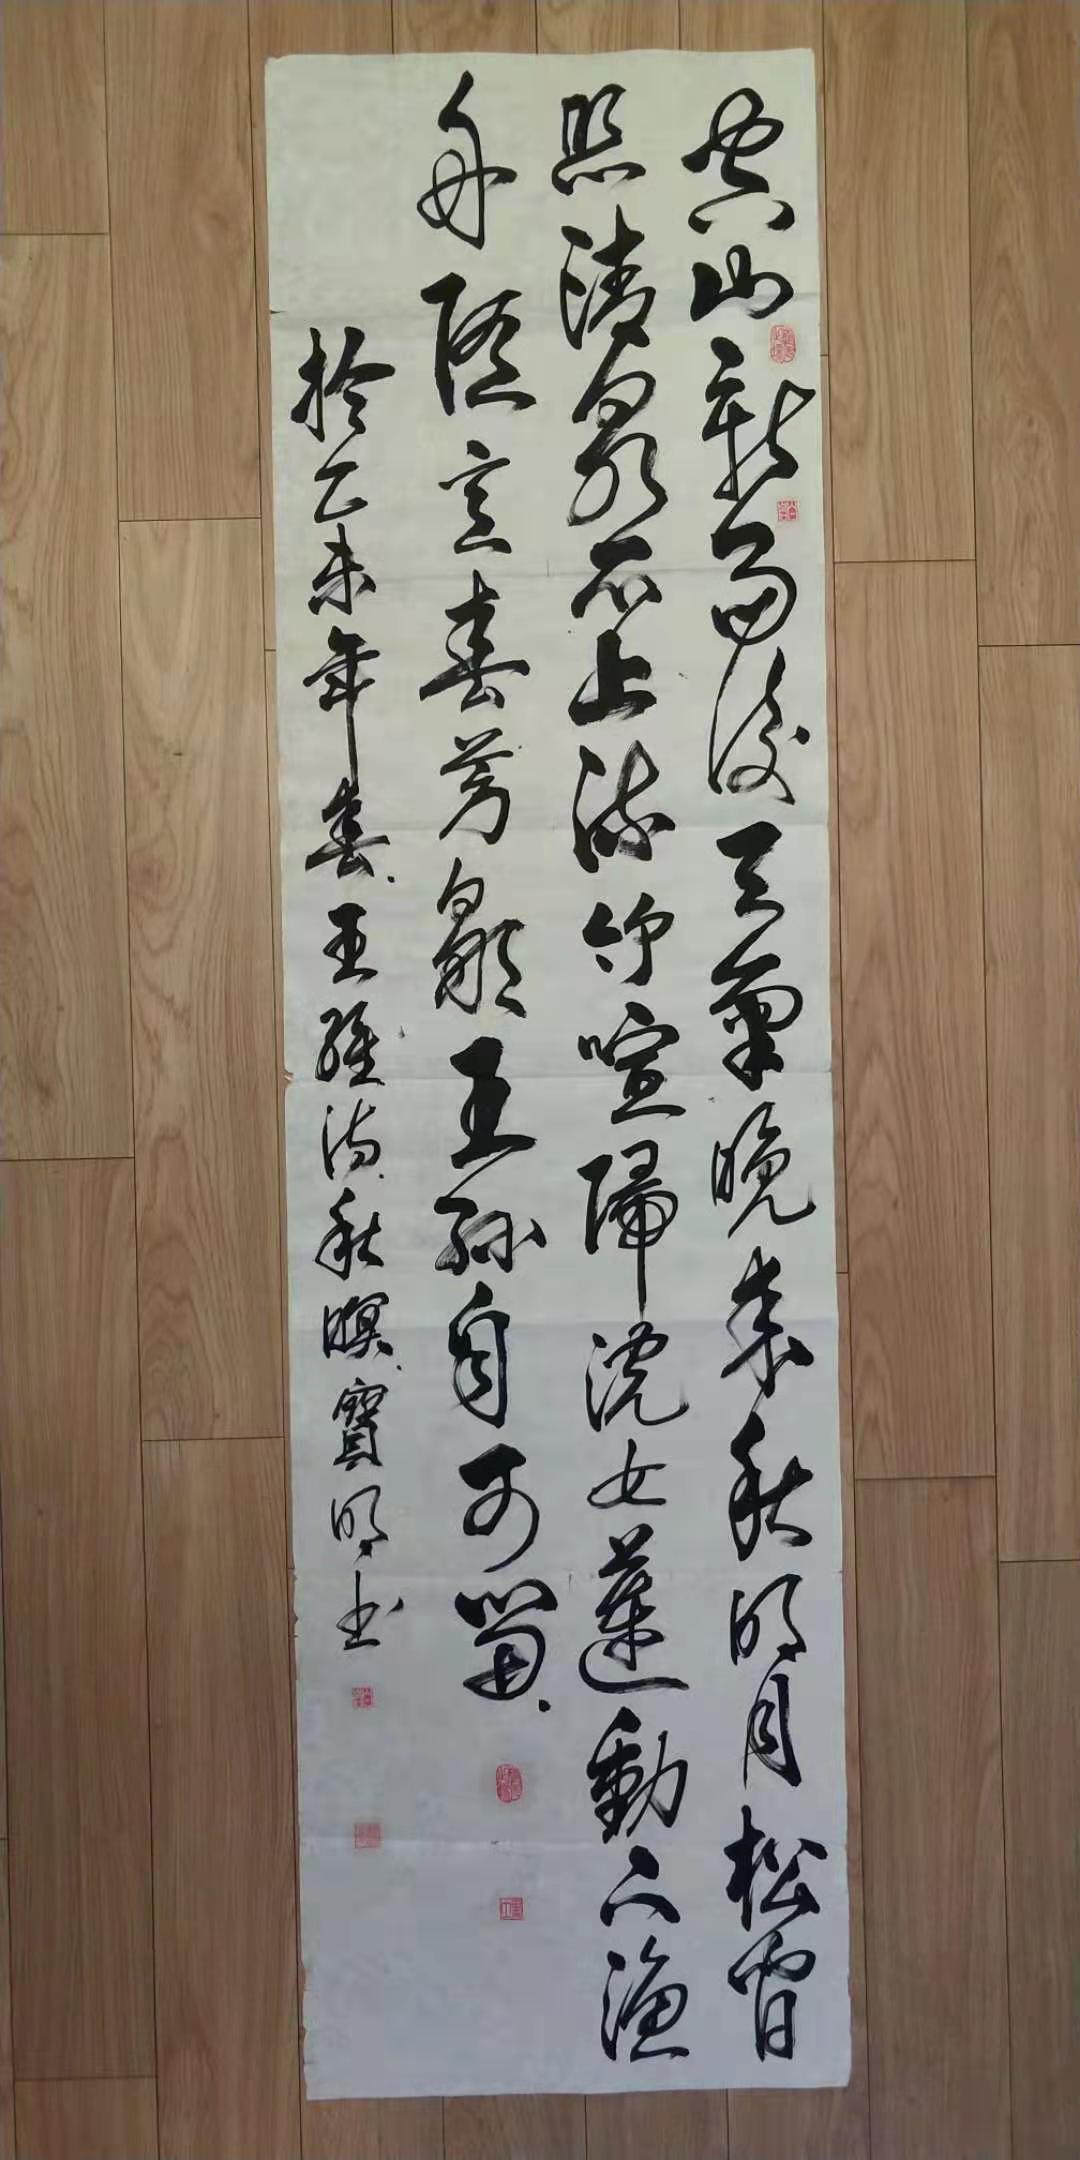 空山新雨後天氣晚来秋明月松間
照清泉石上流竹喧歸浣女蓮動下漁
舟随意春芳歇王孫自可留
於乙未年春王維诗秋暝寶明书